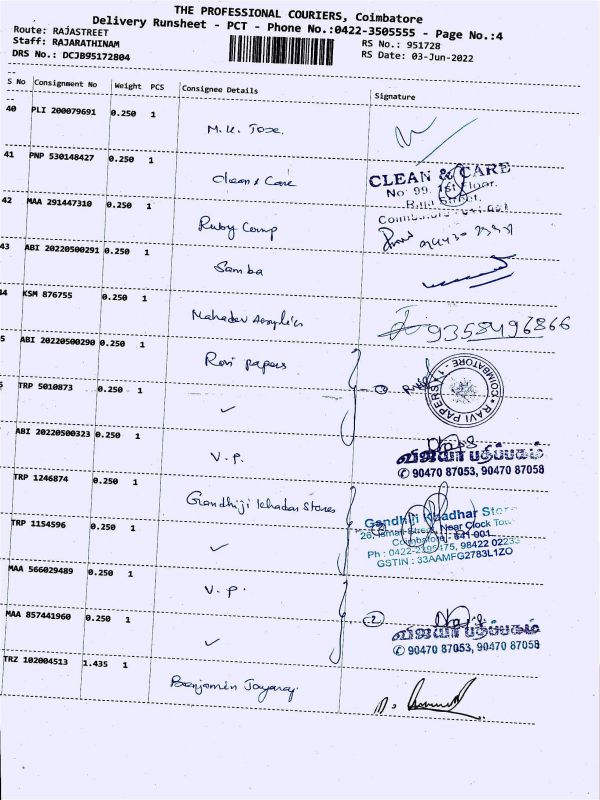 THE PROFESSIONAL COURIERS, Coimbatore
Delivery Runsheet - PCT - Phone No.:0422-3505555 - Page No.:4
Route: RAJASTREET
Staff: RAJARATHINAM
DRS No.: DCJB95172804
RS No.: 951728
RS Date: 03-Jun-2022
S No Consignment No Weight PCS Consignee Details Signature
40 PLI 200079691 0.250 1
M.K. Jose.
41 PNP 530148427 0.250 1
Clean & Care
CLEAN & CARE
No. 99, 1st Floor,
Raja Street,
Coimbatore
42 MAA 291447310 0.250 1
Ruby Comp
43 ABI 20220500291 0.250 1
Samba
44 KSM 876755 0.250 1
Mahadev Acrylics
9358496866
5 ABI 20220500290 0.250 1
Ravi papers
RAVI PAPERS
COIMBATORE - 1
TRP 5010873 0.250 1
✓
ABI 20220500323 0.250 1
V.P.
விஜயா பதிப்பகம்
✆ 90470 87053, 90470 87058
TRP 1246874 0.250 1
Grandhiji khadar Stores
Gandhiji Khadhar Stor
26, Street, Near Clock Tow
Coimbatore - 641 001.
Ph : 0422-2395475, 98422 02233
GSTIN : 33AAMFG2783L1ZO
TRP 1154596 0.250 1
✓
MAA 566029489 0.250 1
V.P.
MAA 857441960 0.250 1
✓
2
விஜயா பதிப்பகம்
✆ 90470 87053, 90470 87058
TRZ 102004513 1.435 1
Benjamin Jayaraj